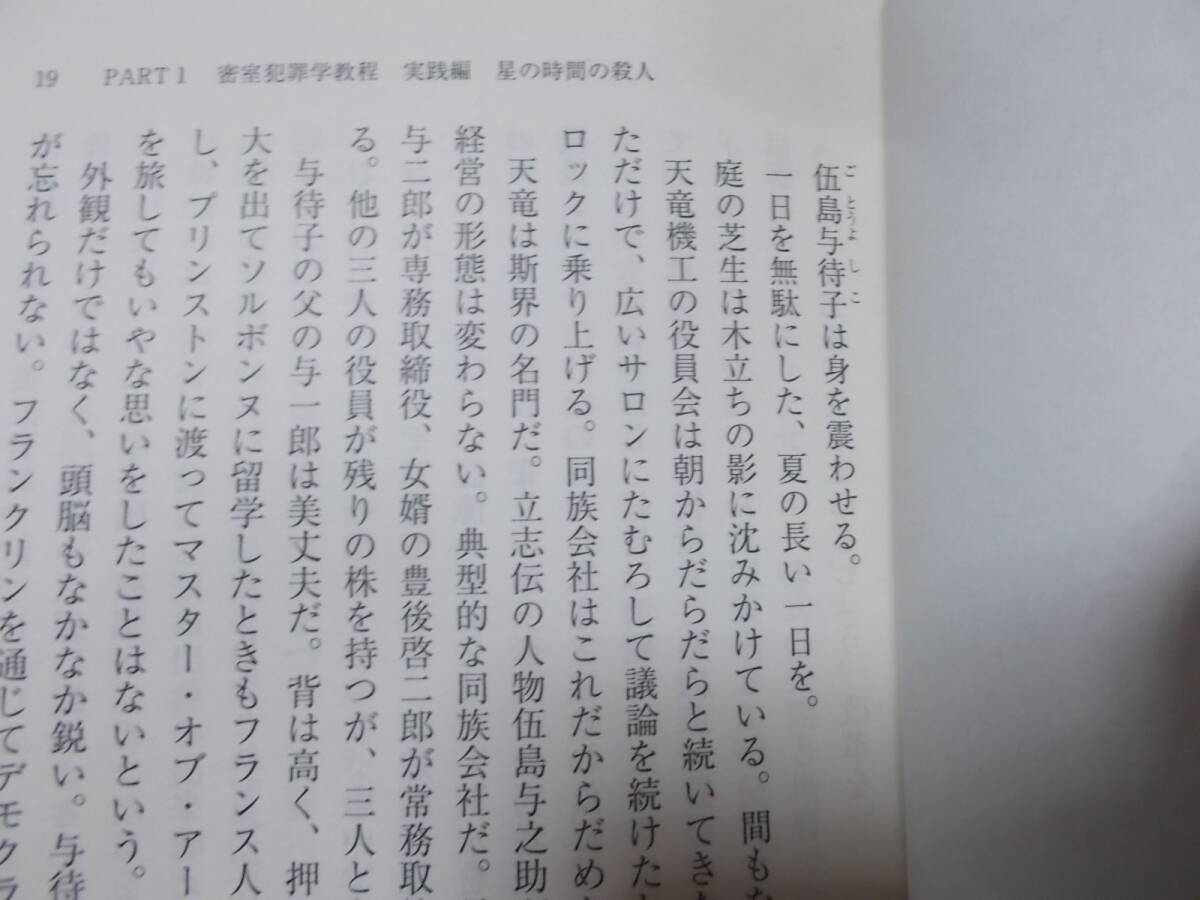 19 PART1 密室犯罪学教程 実践編 星の時間の殺人
伍島与待子は身を震わせる。
ごとうよしこ
一日を無駄にした、夏の長い一日を。
庭の芝生は木立ちの影に沈みかけている。間もな
天竜機工の役員会は朝からだらだらと続いてき
ただけで、広いサロンにたむろして議論を続けた
ロックに乗り上げる。同族会社はこれだからだめ
天竜は斯界の名門だ。立志伝の人物伍島与之助
経営の形態は変わらない。典型的な同族会社だ。
与二郎が専務取締役、女婿の豊後啓二郎が常務取
る。他の三人の役員が残りの株を持つが、三人と
与待子の父の与一郎は美丈夫だ。背は高く、押
大を出てソルボンヌに留学したときもフランス人
し、プリンストンに渡ってマスター・オブ・アー
を旅してもいやな思いをしたことはないという。
外観だけではなく、頭脳もなかなか鋭い。与待
が忘れられない。フランクリンを通じてデモクラ